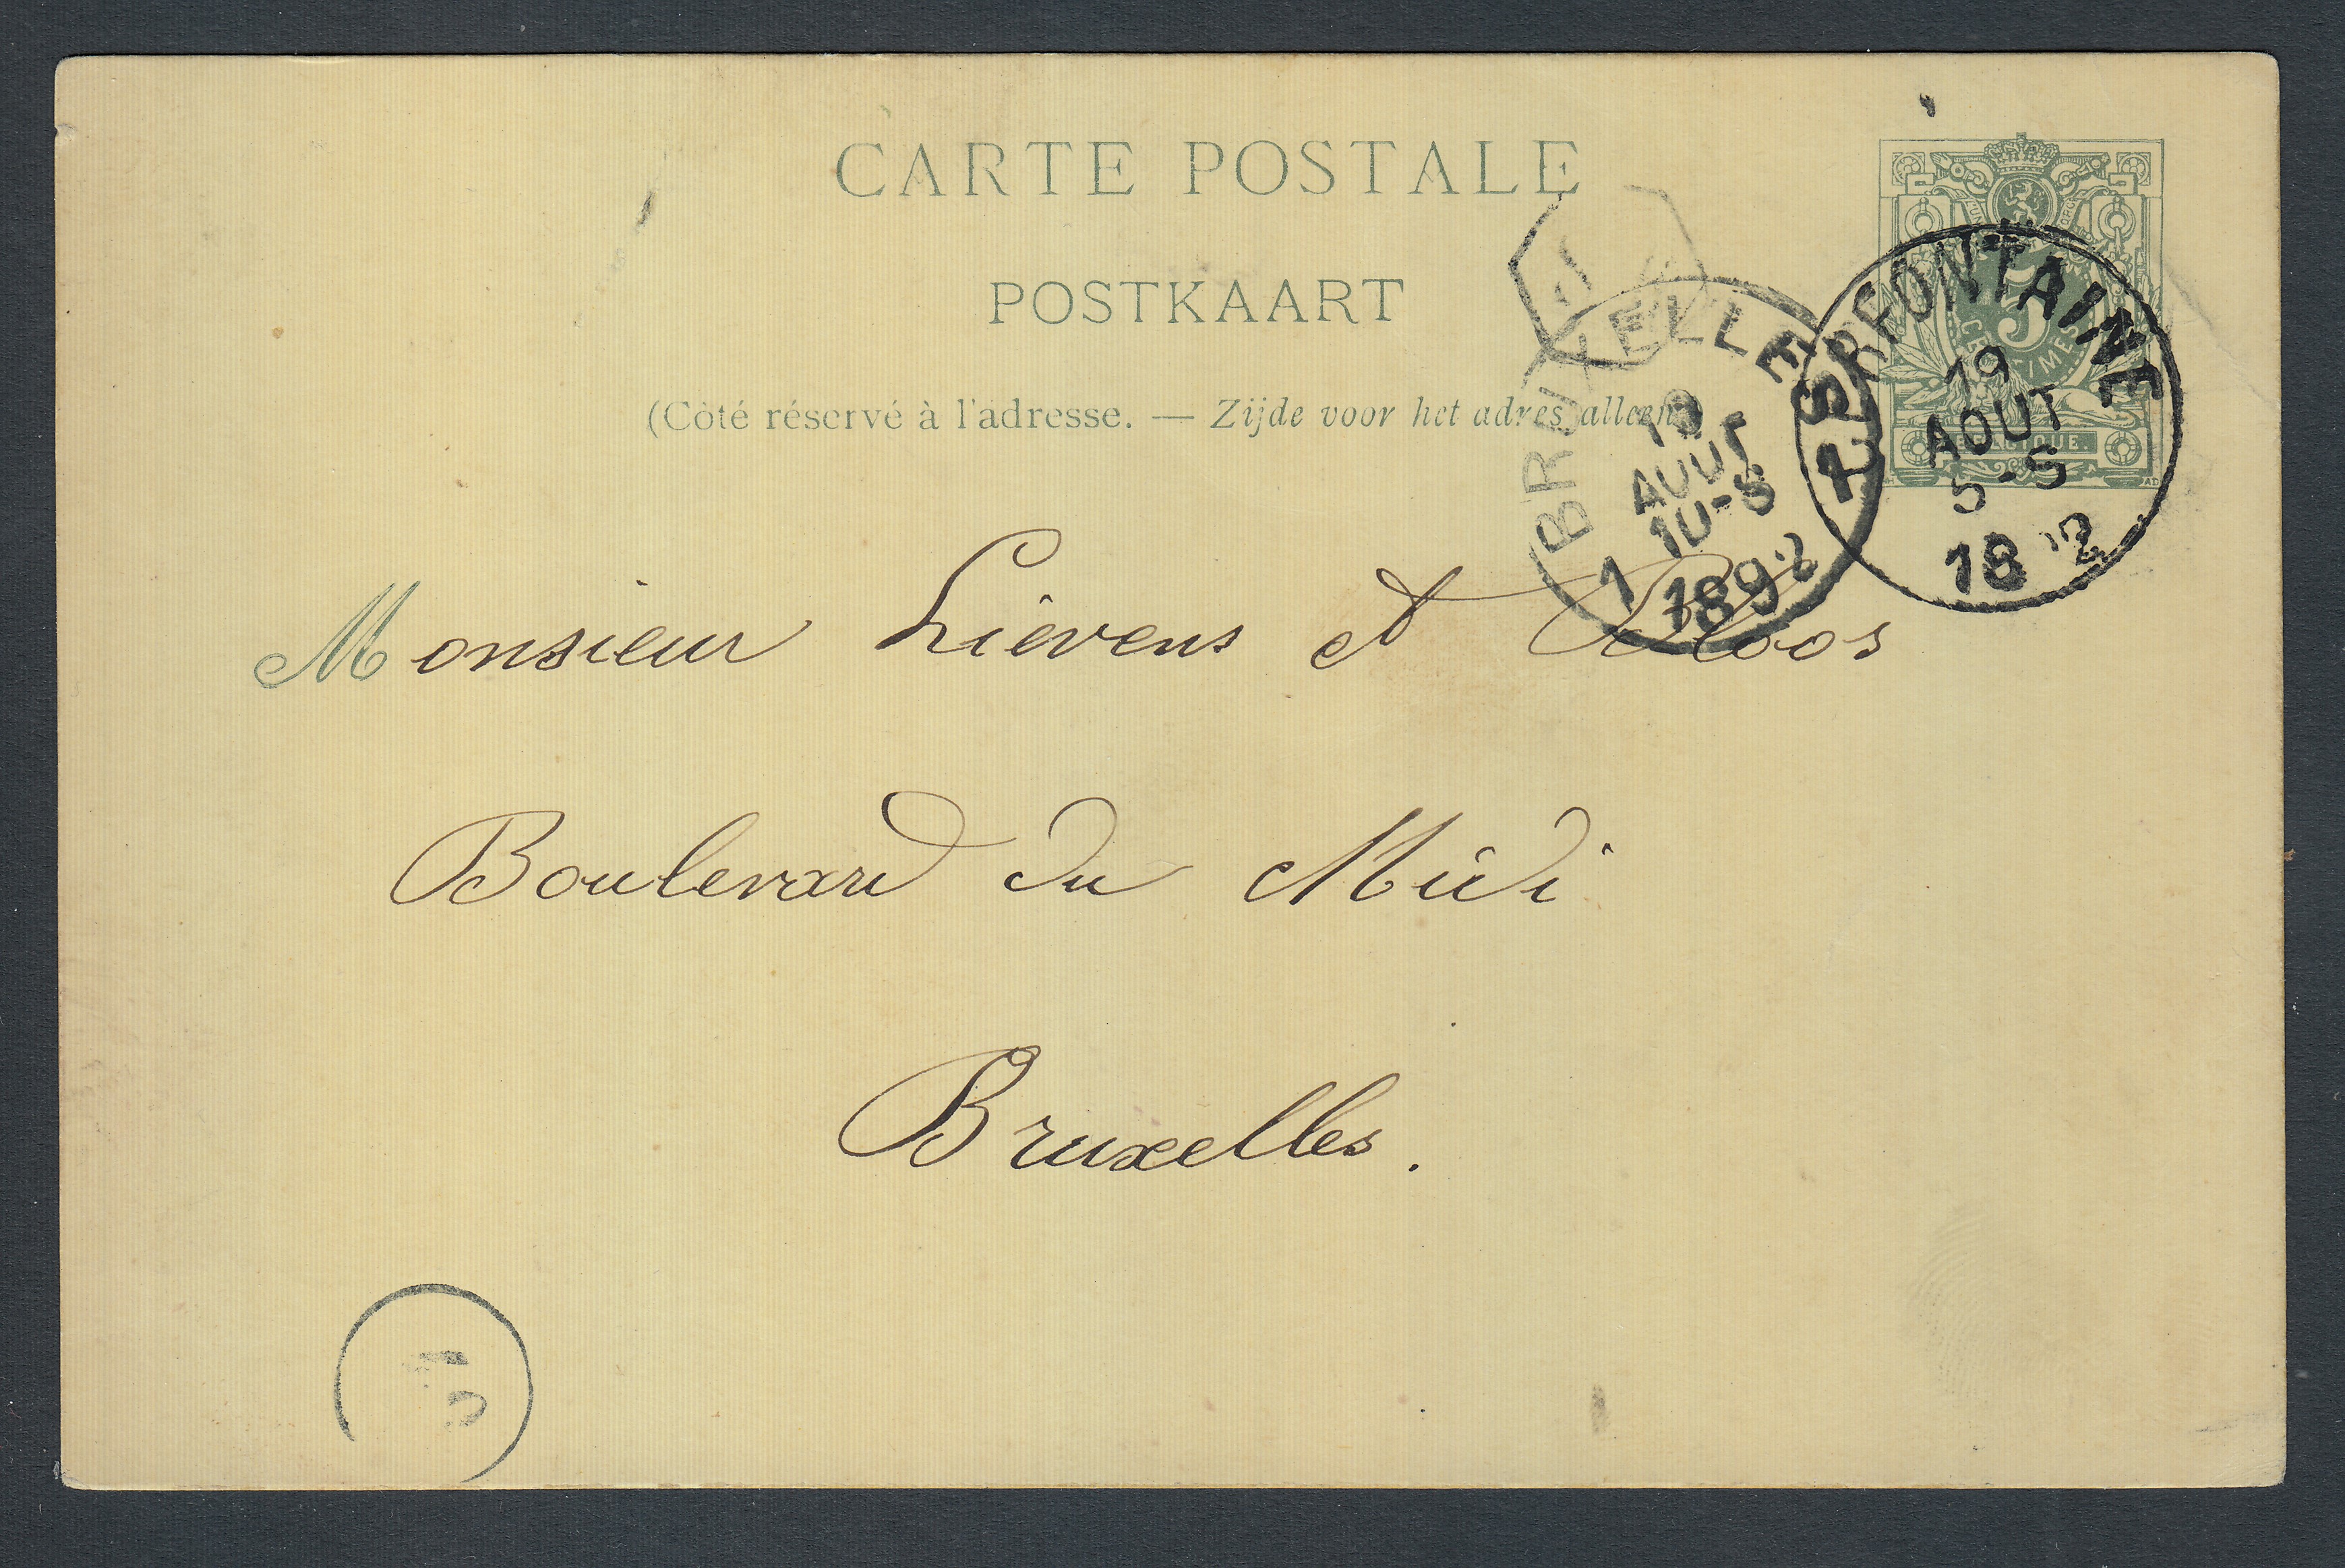 CARTE POSTALE
POSTKAART
(Côté réservé à l'adresse. — Zijde voor het adres alleen)
5
CENTIMES
BELGIQUE.
CERFONTAINE
19
AOUT
5-S
18 2
BRUXELLES
1
19
AOUT
10-S
1892
Monsieur Lievens et
Boulevard du Midi
Bruxelles.